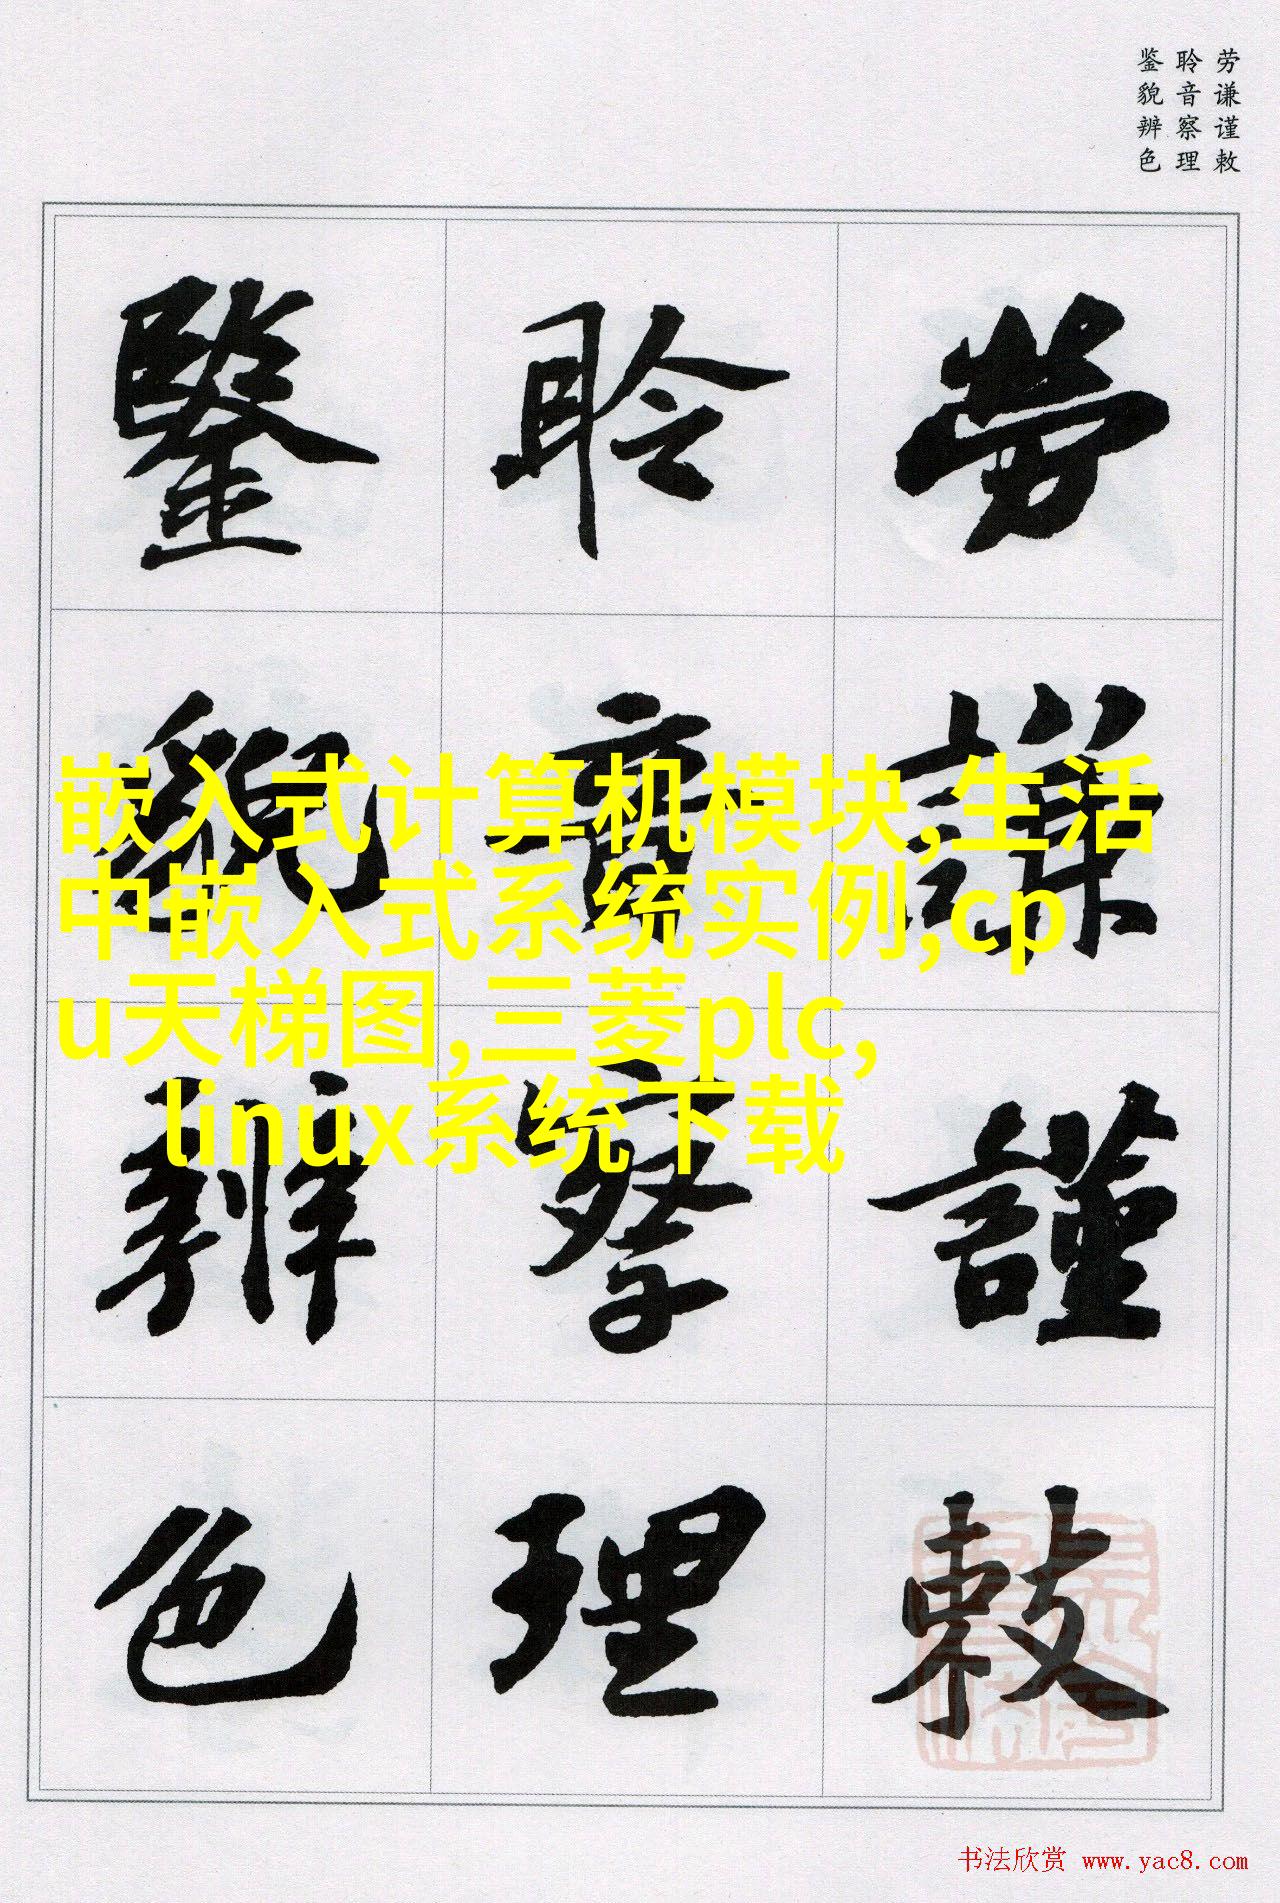 劳谦谨敕
聆音察理
鉴貌辨色
勞謙謹敕
聆音察理
鑒貌辨色
嵌入式计算机模块,生活
中嵌入式系统实例,cp
u天梯图,三菱plc,
linux系统下载
书法欣赏 www.yac8.com